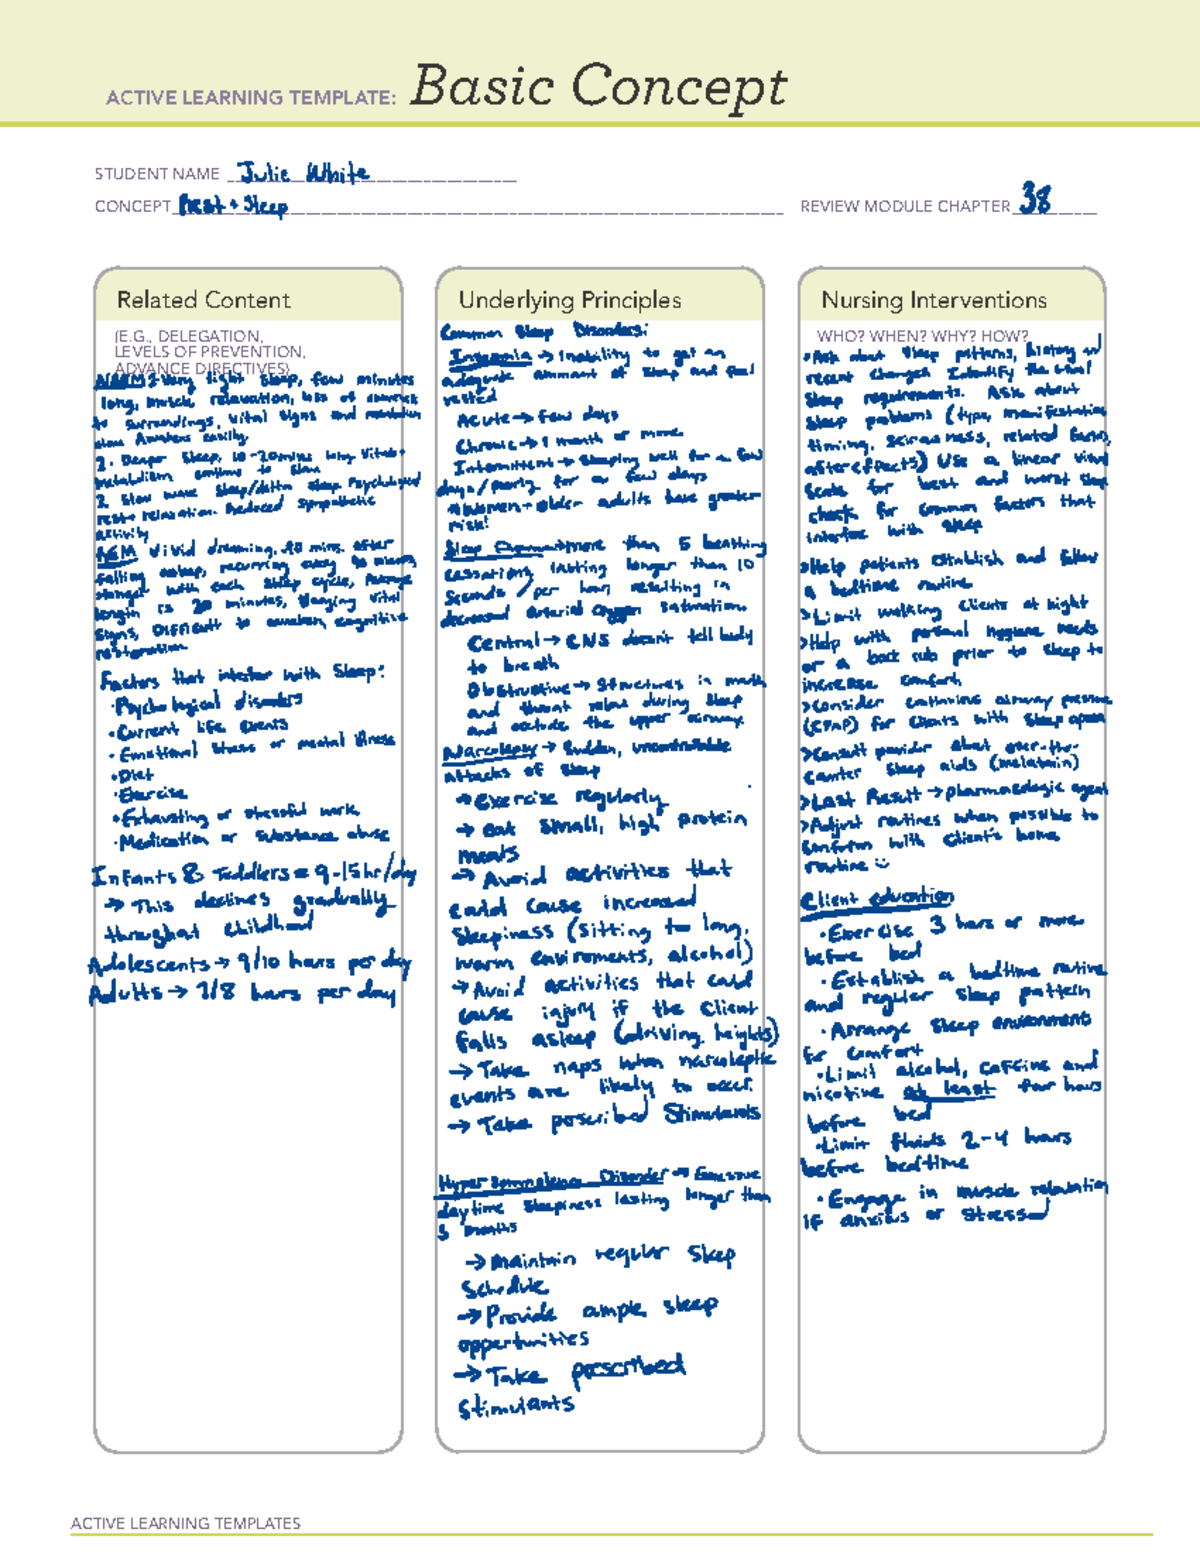 ACTIVE LEARNING TEMPLATE: Basic Concept
STUDENT NAME Julie White
CONCEPT Rest + Sleep
REVIEW MODULE CHAPTER 38
Related Content
(E.G., DELEGATION,
LEVELS OF PREVENTION,
ADVANCE DIRECTIVES)
Very light sleep, few minutes
long, muscle relaxation, loss of
to surroundings, Vital signs and
slow Awakens easily.
2. Deeper Sleep, 10-20 mins long Vitals +
Metabolism continue to slow
3. Slow wave sleep/delta sleep Psychological
rest + relaxation. Reduced sympathetic
activity
REM Vivid dreaming, 90 mins. after
falling asleep, recurring every 90 minutes
longer with each sleep cycle, Average
length is 20 minutes, Varying Vital
signs, Difficult to awaken, cognitive
restoration
Factors that with Sleep:
·Psychological disorders
·Current life events
·Emotional Stress or mental illness
·Diet
·Exercise
·Exhausting or stressful work
·Medication or Substance abuse
Infants & Toddlers = 9-15hr/day
→ This declines gradually
throughout childhood
Adolescents → 9/10 hours per day
Adults → 7/8 hours per day
Underlying Principles
Common Sleep Disorders:
Insomnia → Inability to get an
adequate ammount of sleep and feel
rested
Acute → few days
Chronic → 1 month or more
Intermittent → Sleeping well for a few
days/poorly for a few days
*Women + older adults have greater
risk!
Sleep more than 5 breathing
cessations lasting longer than 10
Seconds / per hour resulting in
decreased arterial oxygen saturation.
Central → CNS doesn't tell body
to breath
Obstructive → Structures in mouth
and throat relax during Sleep
and occlude the upper airway
Narcolepsy → Sudden, uncontrollable
attacks of sleep
→ Exercise regularly
→ eat small, high protein
meals
→ Avoid activities that
could cause increased
Sleepiness (sitting to long,
warm enviroments, alcohol)
→ Avoid activities that could
cause injury if the Client
falls asleep (driving, heights)
→ Take naps when narcoleptic
events are likely to occur.
→ Take perscribed Stimulants
Disorder Excessive
daytime Sleepiness lasting longer than
3 months
→ Maintain regular Sleep
Schedule
→ Provide ample sleep
opportunities
→ Take perscribed
stimulants
Nursing Interventions
WHO? WHEN? WHY? HOW?
Ask about Sleep patterns, history and
recent changes Identify the usual
Sleep requirements. Ask about
Sleep problems (type, manifestation
timing, seriousness, related factors,
aftereffects) Use a linear visual
Scale for best and worst sleep
check for common factors that
interfere with Sleep
>Help patients establish and follow
a bedtime routine
>Limit waking Clients at night
>Help with personal hygiene needs
or a back rub prior to Sleep to
increase comfort
>Consider continuous airway pressure
(CPAP) for Clients with Sleep apnea
>Consult provider about over-the-
counter Sleep aids (melatonin)
>Last Result → pharmacologic agent
>Adjust routines when possible to
conform with Client's home
routine
Client education
·Exercise 3 hours or more
before bed
·Establish a bedtime routine
and regular Sleep pattern
·Arrange Sleep environment
for comfort
·Limit alcohol, caffeine and
nicotine at least four hours
before bed
·Limit fluids 2-4 hours
before bedtime
·Engage in muscle relaxation
if anxious or stressed
ACTIVE LEARNING TEMPLATES